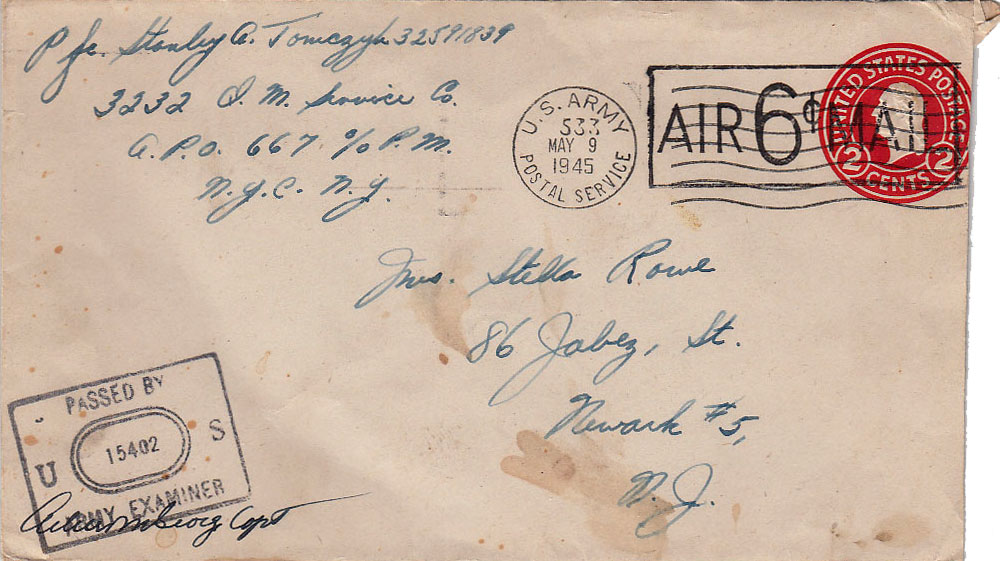 Pfc. Stanley A. Tomczyk 32591839
3232 Q.M. Service Co.
A.P.O. 667 c/o P.M.
N.Y.C. N.Y.
U.S. ARMY
533
MAY 9
1945
POSTAL SERVICE
AIR 6¢ MAIL
UNITED STATES POSTAGE
2 CENTS 2
Mrs. Stella Rowe
86 Jabez, St.
Newark #5,
N.J.
PASSED BY
U 15402 S
ARMY EXAMINER
Capt